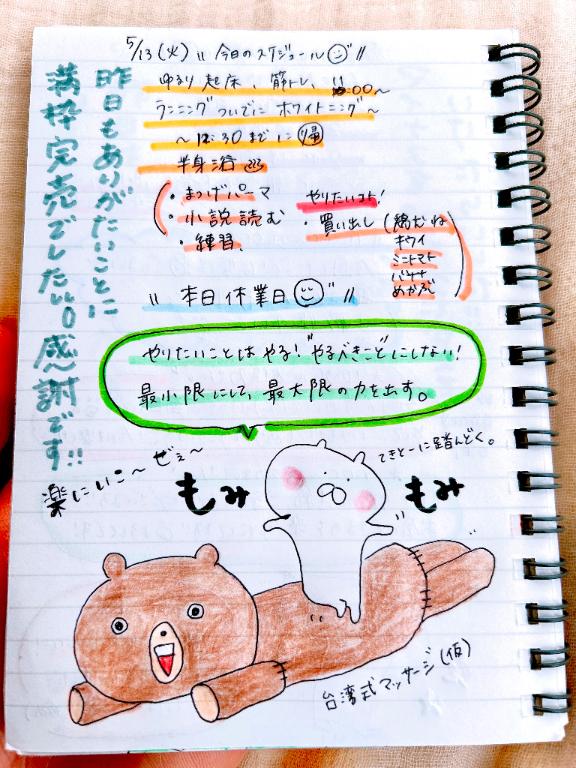 5/13(火) 〃 今日のスケジュール 〃
ゆるり起床、筋トレ、 :00〜
ランニングついでにホワイトニング〜
〜12:30までに帰
半身浴♨
・まつげパーマ
・小説読む
・練習、
やりたいコト!
・買い出し(鶏むね
キウイ
ミニトマト
バナナ
めかぶ)
〃 本日休業日 〃
昨日もありがたいことに
満枠完売でした!!◎感謝です!!
やりたいことはやる!"やるべきこと"にしない!
最小限にして、最大限の力を出す。
楽にいこ〜ぜぇ〜
てきとーに踏んどく。
もみ
もみ
台湾式マッサージ(仮)